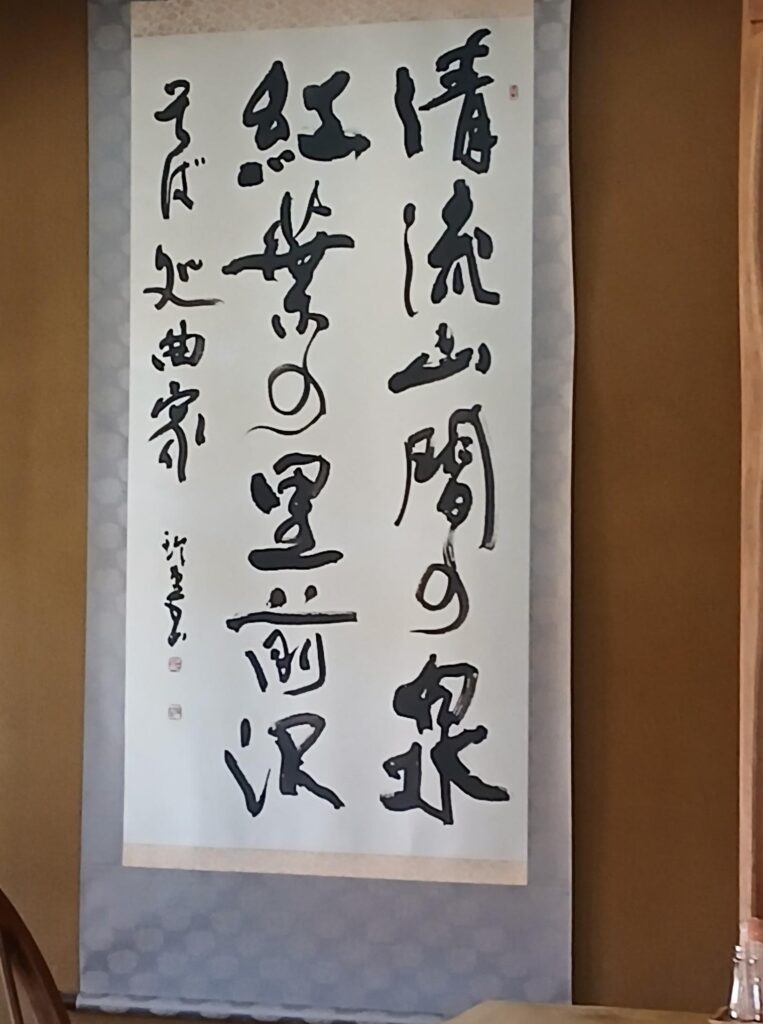 清流山間の泉
紅葉の里前沢
そば処曲家